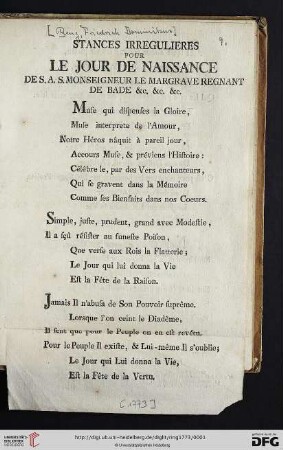 9.
STANCES IRREGULIERES
POUR
LE JOUR DE NAISSANCE
DE S. A. S. MONSEIGNEUR LE MARGRAVE REGNANT
DE BADE &c. &c. &c.
Muse qui dispenses la Gloire,
Muse interprete de l'Amour,
Notre Héros nâquit à pareil jour,
Accours Muse, & préviens l'Histoire:
Célébre le, par des Vers enchanteurs,
Qui se gravent dans la Mémoire
Comme ses Bienfaits dans nos Coeurs.
Simple, juste, prudent, grand avec Modestie,
Il a sçû résister au funeste Poison,
Que verse aux Rois la Flaterie;
Le Jour qui lui donna la Vie
Est la Fête de la Raison.
Jamais Il n'abusa de Son Pouvoir suprême.
Lorsque l'on ceint le Diadême,
Il sent que pour le Peuple on en est revêtu.
Pour le Peuple Il existe, & Lui-même Il s'oublie;
Le Jour qui Lui donna la Vie,
Est la Fête de la Vertu.
[1773]
UNIVERSITÄTS-
BIBLIOTHEK
HEIDELBERG
© Universitätsbibliothek Heidelberg
DFG